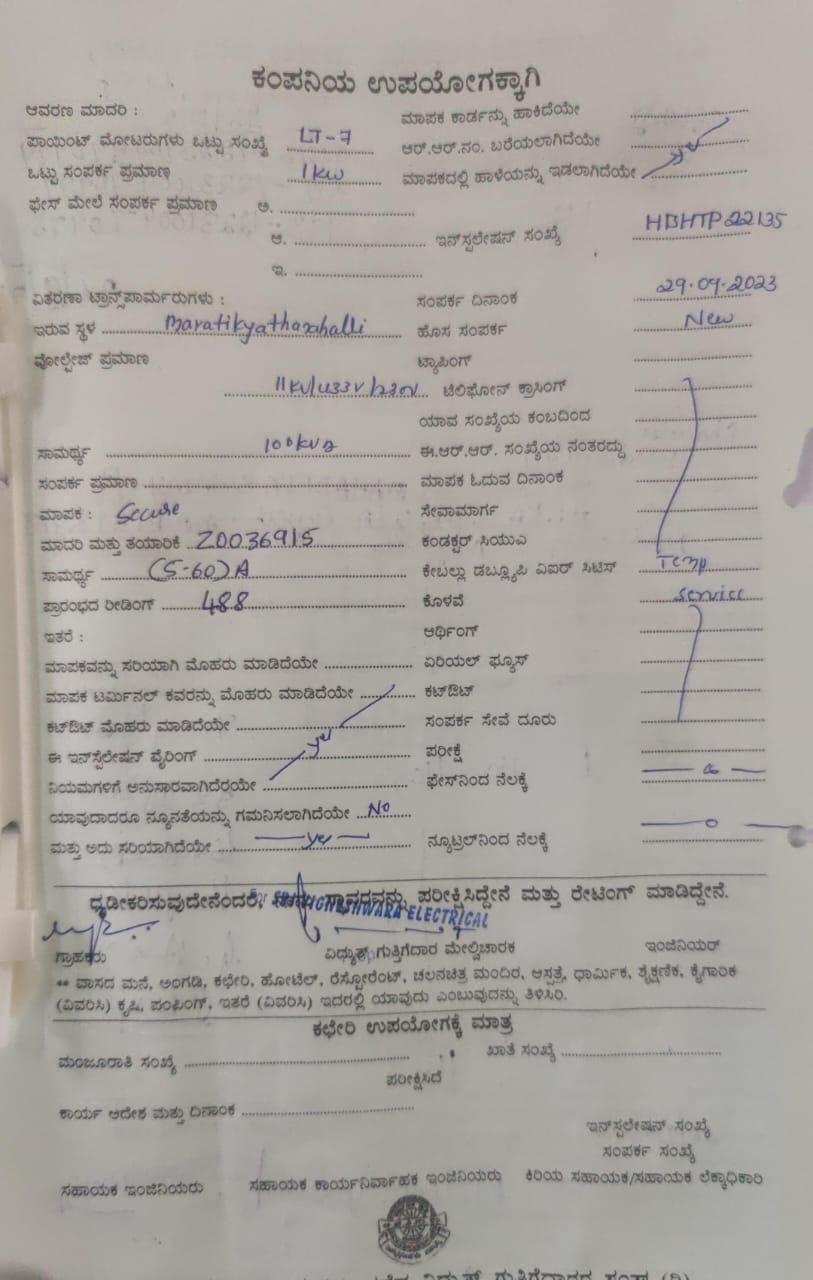 ಕಂಪನಿಯ ಉಪಯೋಗಕ್ಕಾಗಿ
ಆವರಣ ಮಾದರಿ : ಮಾಪಕ ಕಾರ್ಡನ್ನು ಹಾಕಿದೆಯೇ
ಪಾಯಿಂಟ್ ಮೋಟರುಗಳು ಒಟ್ಟು ಸಂಖ್ಯೆ LT-7 ಆರ್.ಆರ್.ನಂ. ಬರೆಯಲಾಗಿದೆಯೇ
ಒಟ್ಟು ಸಂಪರ್ಕ ಪ್ರಮಾಣ 1kw ಮಾಪಕದಲ್ಲಿ ಹಾಳೆಯನ್ನು ಇಡಲಾಗಿದೆಯೇ yes
ಫೇಸ್ ಮೇಲೆ ಸಂಪರ್ಕ ಪ್ರಮಾಣ ಅ.
ಆ. ಇನ್‌ಸ್ಟಲೇಷನ್ ಸಂಖ್ಯೆ HBHTP22135
ಇ.
ವಿತರಣಾ ಟ್ರಾನ್ಸ್‌ಪಾರ್ಮರುಗಳು : ಸಂಪರ್ಕ ದಿನಾಂಕ 29.09.2023
ಇರುವ ಸ್ಥಳ Maratikyathanahalli ಹೊಸ ಸಂಪರ್ಕ New
ವೋಲ್ಟೇಜ್ ಪ್ರಮಾಣ ಟ್ಯಾಪಿಂಗ್
11kv/433v/230v ಟೆಲಿಫೋನ್ ಕ್ರಾಸಿಂಗ್
ಯಾವ ಸಂಖ್ಯೆಯ ಕಂಬದಿಂದ
ಸಾಮರ್ಥ್ಯ 100kva ಈ.ಆರ್.ಆರ್. ಸಂಖ್ಯೆಯ ನಂತರದ್ದು
ಸಂಪರ್ಕ ಪ್ರಮಾಣ ಮಾಪಕ ಓದುವ ದಿನಾಂಕ
ಮಾಪಕ : Secure ಸೇವಾಮಾರ್ಗ
ಮಾದರಿ ಮತ್ತು ತಯಾರಿಕೆ Z0036915 ಕಂಡಕ್ಟರ್ ಸಿಯುಎ
ಸಾಮರ್ಥ್ಯ (5-60)A ಕೇಬಲ್ಲು ಡಬ್ಲ್ಯೂಪಿ ವಿಐರ್ ಸಿಟಿಸ್ Temp
ಪ್ರಾರಂಭದ ರೀಡಿಂಗ್ 488 ಕೊಳವೆ Service
ಇತರೆ : ಆರ್ಥಿಂಗ್
ಮಾಪಕವನ್ನು ಸರಿಯಾಗಿ ಮೊಹರು ಮಾಡಿದೆಯೇ ಏರಿಯಲ್ ಫ್ಯೂಸ್
ಮಾಪಕ ಟರ್ಮಿನಲ್ ಕವರನ್ನು ಮೊಹರು ಮಾಡಿದೆಯೇ ಕಟ್‌ಔಟ್
ಕಟ್‌ಔಟ್ ಮೊಹರು ಮಾಡಿದೆಯೇ ಸಂಪರ್ಕ ಸೇವೆ ದೂರು
ಈ ಇನ್‌ಸ್ಟೆಲೇಷನ್ ವೈರಿಂಗ್ yes ಪರೀಕ್ಷೆ
ನಿಯಮಗಳಿಗೆ ಅನುಸಾರವಾಗಿದೆರೆಯೇ ಫೇಸ್‌ನಿಂದ ನೆಲಕ್ಕೆ
ಯಾವುದಾದರೂ ನ್ಯೂನತೆಯನ್ನು ಗಮನಿಸಲಾಗಿದೆಯೇ No
ಮತ್ತು ಅದು ಸರಿಯಾಗಿದೆಯೇ yes ನ್ಯೂಟ್ರಲ್‌ನಿಂದ ನೆಲಕ್ಕೆ 0
ಧೃಡೀಕರಿಸುವುದೇನೆಂದರೆ, ಸ್ಥಾವರವನ್ನು ಪರೀಕ್ಷಿಸಿದ್ದೇನೆ ಮತ್ತು ರೇಟಿಂಗ್ ಮಾಡಿದ್ದೇನೆ.
ELECTRICAL
ಗ್ರಾಹಕರು ವಿಧ್ಯುತ್ ಗುತ್ತಿಗೆದಾರ ಮೇಲ್ವಿಚಾರಕ ಇಂಜಿನಿಯರ್
** ವಾಸದ ಮನೆ, ಅಂಗಡಿ, ಕಛೇರಿ, ಹೋಟೆಲ್, ರೆಸ್ಟೋರೆಂಟ್, ಚಲನಚಿತ್ರ ಮಂದಿರ, ಆಸ್ಪತ್ರೆ, ಧಾರ್ಮಿಕ, ಶೈಕ್ಷಣಿಕ, ಕೈಗಾರಿಕ
(ವಿವರಿಸಿ) ಕೃಷಿ, ಪಂಪಿಂಗ್, ಇತರೆ (ವಿವರಿಸಿ) ಇದರಲ್ಲಿ ಯಾವುದು ಎಂಬುವುದನ್ನು ತಿಳಿಸಿರಿ.
ಕಛೇರಿ ಉಪಯೋಗಕ್ಕೆ ಮಾತ್ರ
ಮಂಜೂರಾತಿ ಸಂಖ್ಯೆ ಖಾತೆ ಸಂಖ್ಯೆ
ಪರೀಕ್ಷಿಸಿದೆ
ಕಾರ್ಯ ಆದೇಶ ಮತ್ತು ದಿನಾಂಕ
ಇನ್‌ಸ್ಟಲೇಷನ್ ಸಂಖ್ಯೆ
ಸಂಪರ್ಕ ಸಂಖ್ಯೆ
ಸಹಾಯಕ ಇಂಜಿನಿಯರು ಸಹಾಯಕ ಕಾರ್ಯನಿರ್ವಾಹಕ ಇಂಜಿನಿಯರು ಕಿರಿಯ ಸಹಾಯಕ/ಸಹಾಯಕ ಲೆಕ್ಕಾಧಿಕಾರಿ